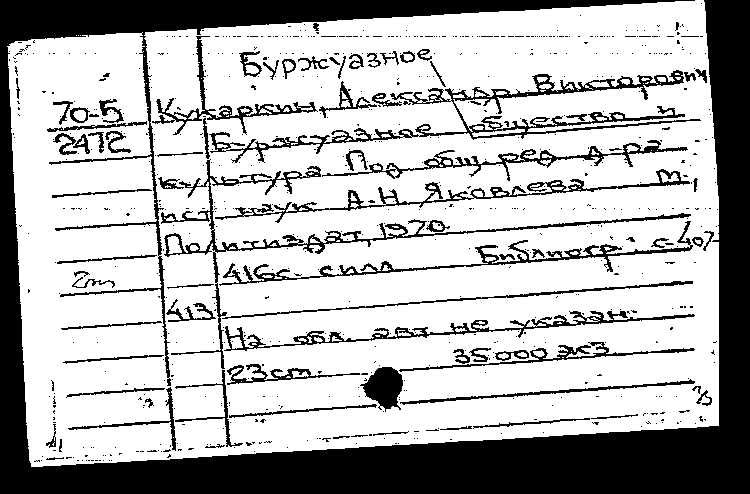 Буржуазное
70-5 Кукаркин, Александр Викторович
2472 Буржуазное общество и
культура. Под общ. ред. д-ра
ист. наук А.Н. Яковлева. М.,
Политиздат, 1970.
416 с. с илл. Библиогр.: с. 407-
413.
На обл. авт. не указан.
23 см. 35000 экз.